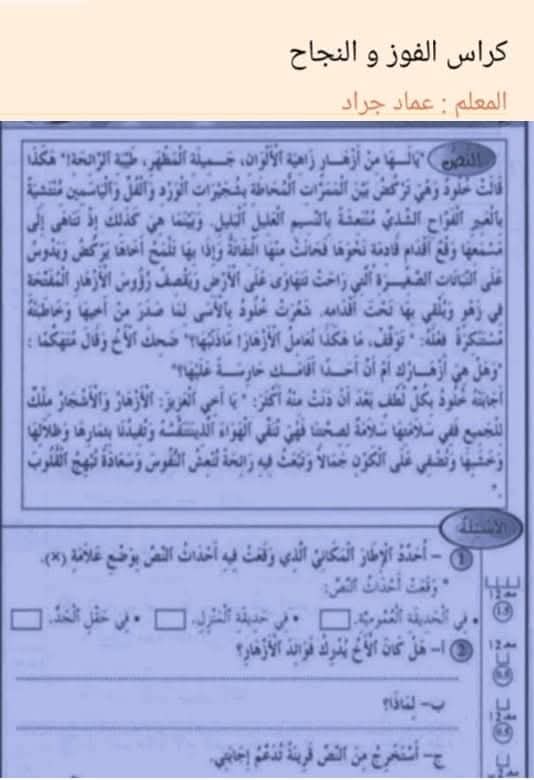 كراس الفوز و النجاح
المعلم : عماد جراد
النص
"يَالَـهَا مِنْ أَزْهَـارٍ زَاهِيَةِ الْأَلْوَانِ، جَـمِيلَةِ الْمَظْهَرِ، طَيِّبَةِ الرَّائِحَةِ!" هَكَذَا
قَالَتْ خُلُودُ وَهِيَ تَرْكُضُ بَيْنَ الْمَمَرَّاتِ الْمُحَاطَةِ بِشُجَيْرَاتِ الْوَرْدِ وَالْفُلِّ وَالْيَاسَمِينِ مُنْتَشِيَةً
بِالْعَبِيرِ الْفَوَّاحِ الشَّذِيِّ مُنْتَعِشَةً بِالنَّسِيمِ الْعَلِيلِ الْبَلِيلِ. وَبَيْنَمَا هِيَ كَذَلِكَ إِذْ تَنَاهَى إِلَى
مَسْمَعِهَا وَقْعُ أَقْدَامٍ قَادِمَةٍ نَحْوَهَا فَحَانَتْ مِنْهَا الْتِفَاتَةٌ وَإِذَا بِهَا تَلْمَحُ أَخَاهَا يَرْكُضُ وَيَدُوسُ
عَلَى النَّبَاتَاتِ الصَّغِيـرَةِ الَّتِي رَاحَتْ تَتَهَاوَى عَلَى الْأَرْضِ وَيَقْصِفُ رُؤُوسَ الْأَزْهَارِ الْمُتَفَتِّحَةِ
فِي زَهْوٍ وَيُلْقِي بِهَا تَحْتَ أَقْدَامِهِ. شَعُرَتْ خُلُودُ بِالْأَسَى لِمَا صَدَرَ مِنْ أَخِيهَا وَخَاطَبَتْهُ
مُسْتَنْكِرَةً فِعْلَهُ: " تَوَقَّفْ، مَا هَكَذَا تُعَامَلُ الْأَزْهَارُ! مَاذَنْبُهَا؟" ضَحِكَ الْأَخُ وَقَالَ مُتَهَكِّمًا :
"وَهَلْ هِيَ أَزْهَـارُكِ أَمْ أَنَّ أَحَـدًا أَقَامَـكِ حَارِسَـةً عَلَيْهَا؟"
أَجَابَتْهُ خُلُودُ بِكُلِّ لُطْفٍ بَعْدَ أَنْ دَنَتْ مِنْهُ أَكْثَرَ: " يَا أَخِي الْعَزِيزَ: الْأَزْهَارُ وَالْأَشْجَارُ مِلْكٌ
لِلْجَمِيعِ فَفِي سَلَامَتِهَا سَلَامَةٌ لِصِحَّتِنَا فَهْيَ تُنَقِّي الْهَوَاءَ الَّذِي نَتَنَفَّسُهُ وَتُفِيدُنَا بِثِمَارِهَا وَظِلَالِهَا
وَخَشَبِهَا وَتُضْفِي عَلَى الْكَوْنِ جَمَالًا وَتَبْعَثُ فِيهِ رَائِحَةً تُنْعِشُ النُّفُوسَ وَسَعَادَةً تُبْهِجُ الْقُلُوبَ
."
الأسئلة
1 – أُحَدِّدُ الْإِطَارَ الْمَكَانِيَّ الَّذِي وَقَعَتْ فِيهِ أَحْدَاثُ النَّصِّ بِوَضْعِ عَلَامَةِ (×).
* وَقَعَتْ أَحْدَاثُ النَّصِّ:
• فِي الْحَدِيقَةِ الْعُمُومِيَّةِ. • فِي حَدِيقَةِ الْمَنْزِلِ. • فِي حَقْلِ الْجَدِّ.
2 أ– هَلْ كَانَ الْأَخُ يُدْرِكُ فَوَائِدَ الْأَزْهَارِ؟
ب– لِمَاذَا؟
ج– أَسْتَخْرِجُ مِنَ النَّصِّ قَرِينَةً تُدَعِّمُ إِجَابَتِي.